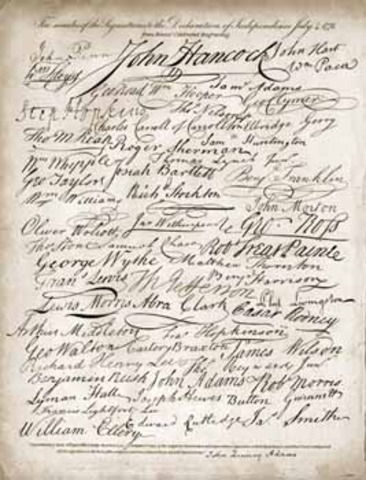 Facsimiles of the Signatures to the Declaration of Independence July 4, 1776.
John Penn John Hancock John Hart
Wm Paca
Geo Read Wm Hooper Saml Adams
Geo Clymer
Step Hopkins Thos Nelson
Charles Carroll of Carrollton Elbridge Gerry
Tho M Kean Roger Sherman Saml Huntington
Wm Whipple Thomas Lynch Junr
Geo Taylor Josiah Bartlett Benj Franklin
Wm Williams Richd Stockton
John Morton
Oliver Wolcott Jno Witherspoon Geo Ross
Tho Stone Samuel Chase Robt Treat Paine
George Wythe Matthew Thornton
Frans Lewis Th Jefferson Benj Harrison
Lewis Morris Abra Clark Cæsar Rodney
Phil Livingston
Arthur Middleton Fras Hopkinson
Geo Walton Carter Braxton James Wilson
Richard Henry Lee Thos Heyward Junr
Benjamin Rush John Adams Robt Morris
Lyman Hall Joseph Hewes Button Gwinnett
Francis Lightfoot Lee
William Ellery Edward Rutledge Jas Smith
John Quincy Adams